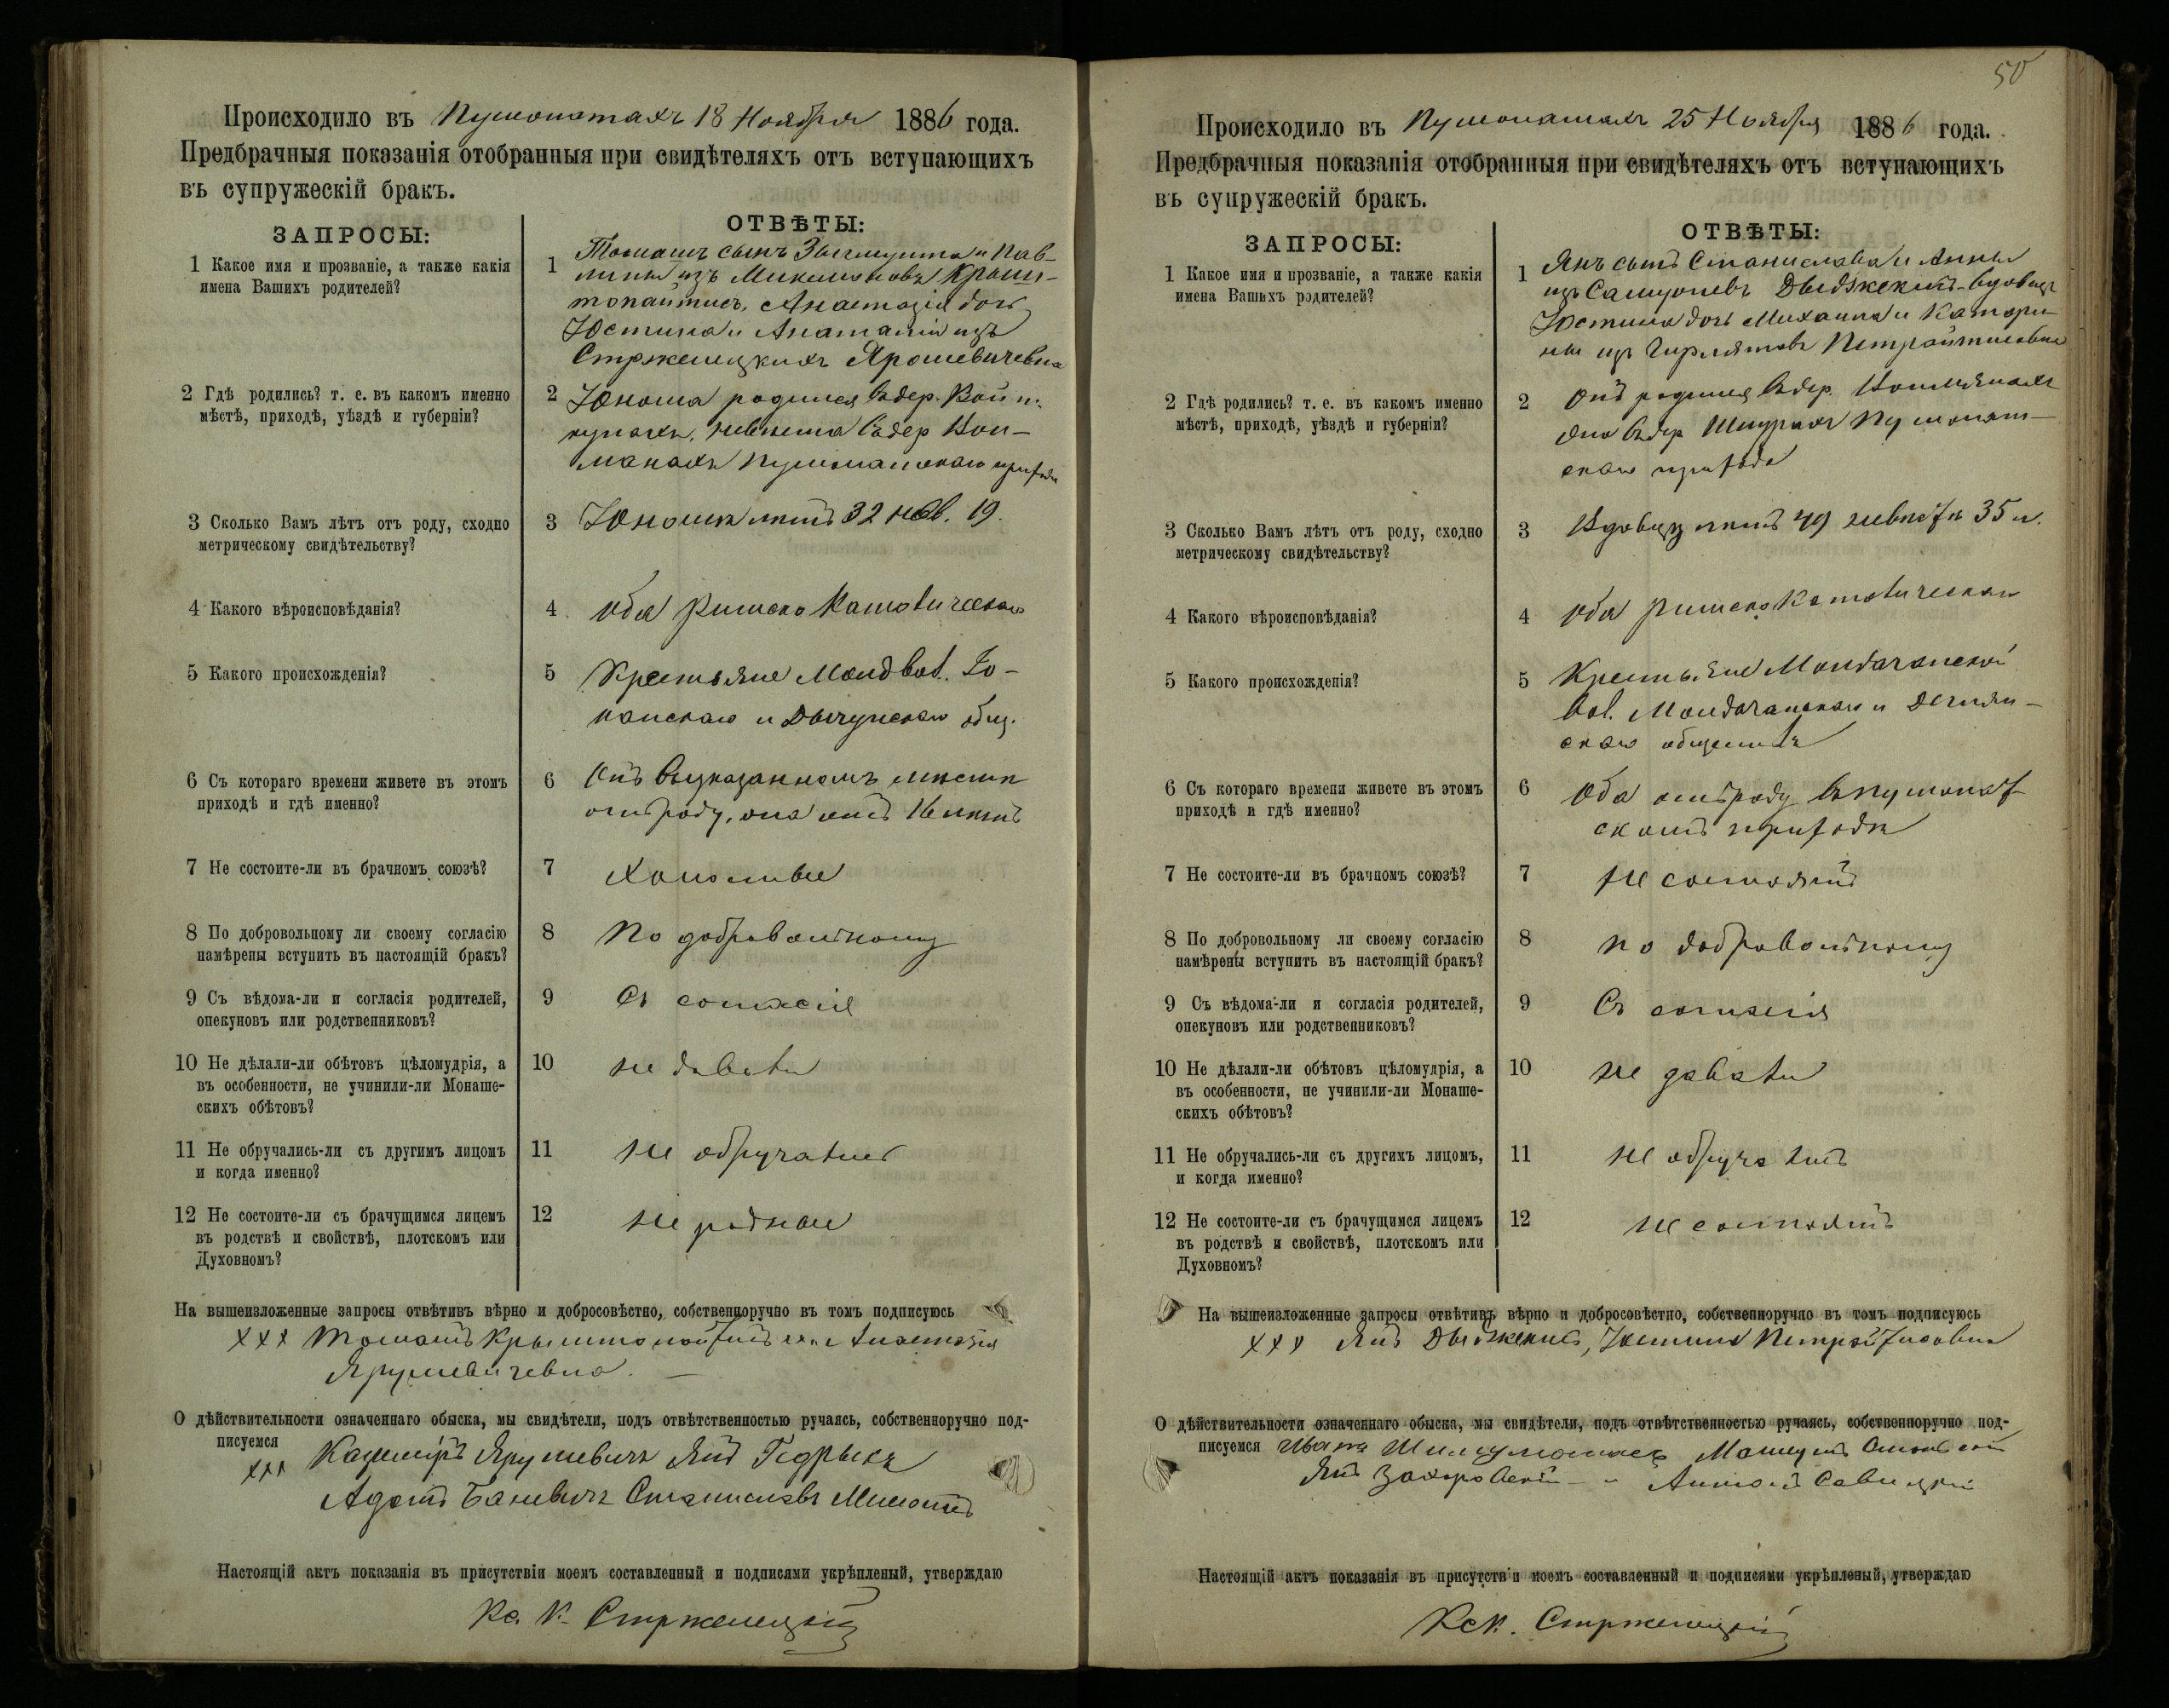 Происходило въ Пушолатахъ 18 Ноября 1886 года.
Предбрачныя показанія отобранныя при свидѣтеляхъ отъ вступающихъ
въ супружескій бракъ.
ЗАПРОСЫ:
ОТВѢТЫ:
1 Какое имя и прозваніе, а также какія
имена Вашихъ родителей?
1 Томашъ сынъ Зыгмунта и Пав-
лины изъ
Анастазія дочь
Юстина и Анатоліи изъ
Стржелецкихъ Ярошевичевна
2 Гдѣ родились? т. е. въ какомъ именно
мѣстѣ, приходѣ, уѣздѣ и губерніи?
2 Юноша родился въ дер.
невѣста въ дер
Пушолатскаго прихода
3 Сколько Вамъ лѣтъ отъ роду, сходно
метрическому свидѣтельству?
3 Юноша лѣтъ 32 нев. 19.
4 Какого вѣроисповѣданія?
4 Оба Римско Католическаго
5 Какого происхожденія?
5 Крестьяне
общ.
6 Съ котораго времени живете въ этомъ
приходѣ и гдѣ именно?
6 Онъ въ указанномъ мѣстѣ
отъ роду, она отъ 16 лѣтъ
7 Не состоите-ли въ брачномъ союзѣ?
7 Холостые
8 По добровольному ли своему согласію
намѣрены вступить въ настоящій бракъ?
8 По добровольному
9 Съ вѣдома-ли и согласія родителей,
опекуновъ или родственниковъ?
9 Съ согласія
10 Не дѣлали-ли обѣтовъ цѣломудрія, а
въ особенности, не учинили-ли Монаше-
скихъ обѣтовъ?
10 не давали
11 Не обручались-ли съ другимъ лицомъ
и когда именно?
11 не обручались
12 Не состоите-ли съ брачущимся лицемъ
въ родствѣ и свойствѣ, плотскомъ или
Духовномъ?
12 не родные
На вышеизложенные запросы отвѣтивъ вѣрно и добросовѣстно, собственноручно въ томъ подписуюсь
ххх Томашъ Анастазія
Ярушевичевна.
О дѣйствительности означеннаго обыска, мы свидѣтели, подъ отвѣтственностью ручаясь, собственноручно под-
писуемся
ххх Казиміръ Ярушевичъ Янъ
Адамъ Баневичъ Станиславъ
Настоящій актъ показанія въ присутствіи моемъ составленный и подписями укрѣпленый, утверждаю
Кс. К. Стржелецкій
50
Происходило въ Пушолатахъ 25 Ноября 1886 года.
Предбрачныя показанія отобранныя при свидѣтеляхъ отъ вступающихъ
въ супружескій бракъ.
ЗАПРОСЫ:
ОТВѢТЫ:
1 Какое имя и прозваніе, а также какія
имена Вашихъ родителей?
1 Янъ сынъ Станислава и Анны
изъ вдовецъ
Юстина дочь Михаила и Катари-
ны изъ
2 Гдѣ родились? т. е. въ какомъ именно
мѣстѣ, приходѣ, уѣздѣ и губерніи?
2 Онъ родился въ дер.
она въ дер Пушолат-
скаго прихода
3 Сколько Вамъ лѣтъ отъ роду, сходно
метрическому свидѣтельству?
3 Вдовецъ лѣтъ 49 невѣста 35 л.
4 Какого вѣроисповѣданія?
4 Оба Римско Католическаго
5 Какого происхожденія?
5 Крестьяне
вол.
скаго
6 Съ котораго времени живете въ этомъ
приходѣ и гдѣ именно?
6 Оба отъ роду въ Пушолат
скомъ приходѣ
7 Не состоите-ли въ брачномъ союзѣ?
7 не состоятъ
8 По добровольному ли своему согласію
намѣрены вступить въ настоящій бракъ?
8 по добровольному
9 Съ вѣдома-ли и согласія родителей,
опекуновъ или родственниковъ?
9 Съ согласія
10 Не дѣлали-ли обѣтовъ цѣломудрія, а
въ особенности, не учинили-ли Монаше-
скихъ обѣтовъ?
10 не давали
11 Не обручались-ли съ другимъ лицомъ,
и когда именно?
11 не обручались
12 Не состоите-ли съ брачущимся лицемъ
въ родствѣ и свойствѣ, плотскомъ или
Духовномъ?
12 не состоятъ
На вышеизложенные запросы отвѣтивъ вѣрно и добросовѣстно, собственноручно въ томъ подписуюсь
ххх Янъ Юстина
О дѣйствительности означеннаго обыска, мы свидѣтели, подъ отвѣтственностью ручаясь, собственноручно под-
писуемся
Янъ Антонъ Савицкій
Настоящій актъ показанія въ присутствіи моемъ составленный и подписями укрѣпленый, утверждаю
Кс К. Стржелецкій